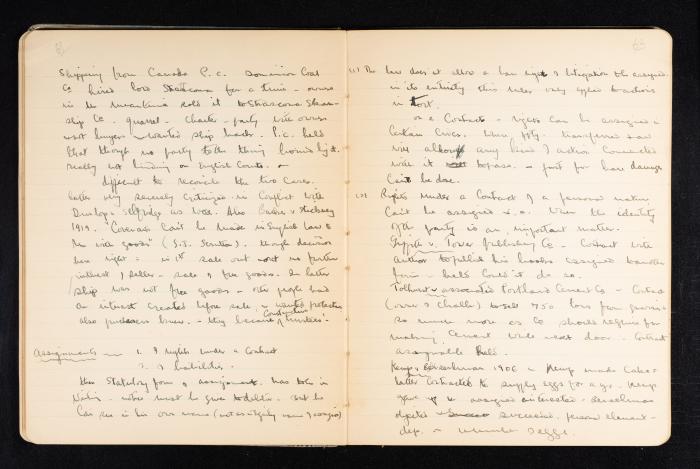 Shipping from Canada P.C. Dominion Coal
Co hired for a time - owners
in the meantime sold it to Strathcona Steam-
ship Co. quarrel - charter-party with owners
not buyers - wanted ship back. P.C. held
that though no party to the thing bound by it.
really not binding on English Courts.
difficult to reconcile the two cases.
latter very severely criticized in conflict with
Dunlop v Selfridge as well. Also v
1919. "Covenants can't be made in English Law to
run with goods" (S.J. Scrutton). though decision
here right: in 1st sale out no further
interest of sellers - sale of free goods. In latter
ship was not free goods - other people had
an interest created before sale & wanted protection
also purchasers knew. - they became constructive trustees.
Assignments 1. of rights under a contract
2. of liabilities.
Statutory form of assignment. has to be in
writing - notice must be given to debtor. but he
can sue in his own name (not as originally name of assignor)
(1) The law does not allow a bare right of litigation to be assigned
in its entirety this rule only applied to actions
in tort.
on a Contract - rights can be assigned in
certain cases. When ppty. transferred and
with any kind of action connected
with it to pass. - just for bare damages
can't be done.
(2) Rights under a Contract of a personal nature
can't be assigned When the identity
of the party is an important matter.
Griffith v. Tower Publishing Co - Contract with
author to publish his books assigned to another
firm - held couldn't do so.
Tolhurst v associated Portland Cement Co - Contract
(owner of chalk) to sell 750 tons per
so much more as Co should require for
making cement Works next door. Contract
assignable held.
Kemp v Baerselman 1906 - Kemp made cakes
latter contracted to supply eggs for a yr. Kemp
gave up & assigned interested - Baerselman
objected - succeeded. personal element -
dep. on number of eggs.